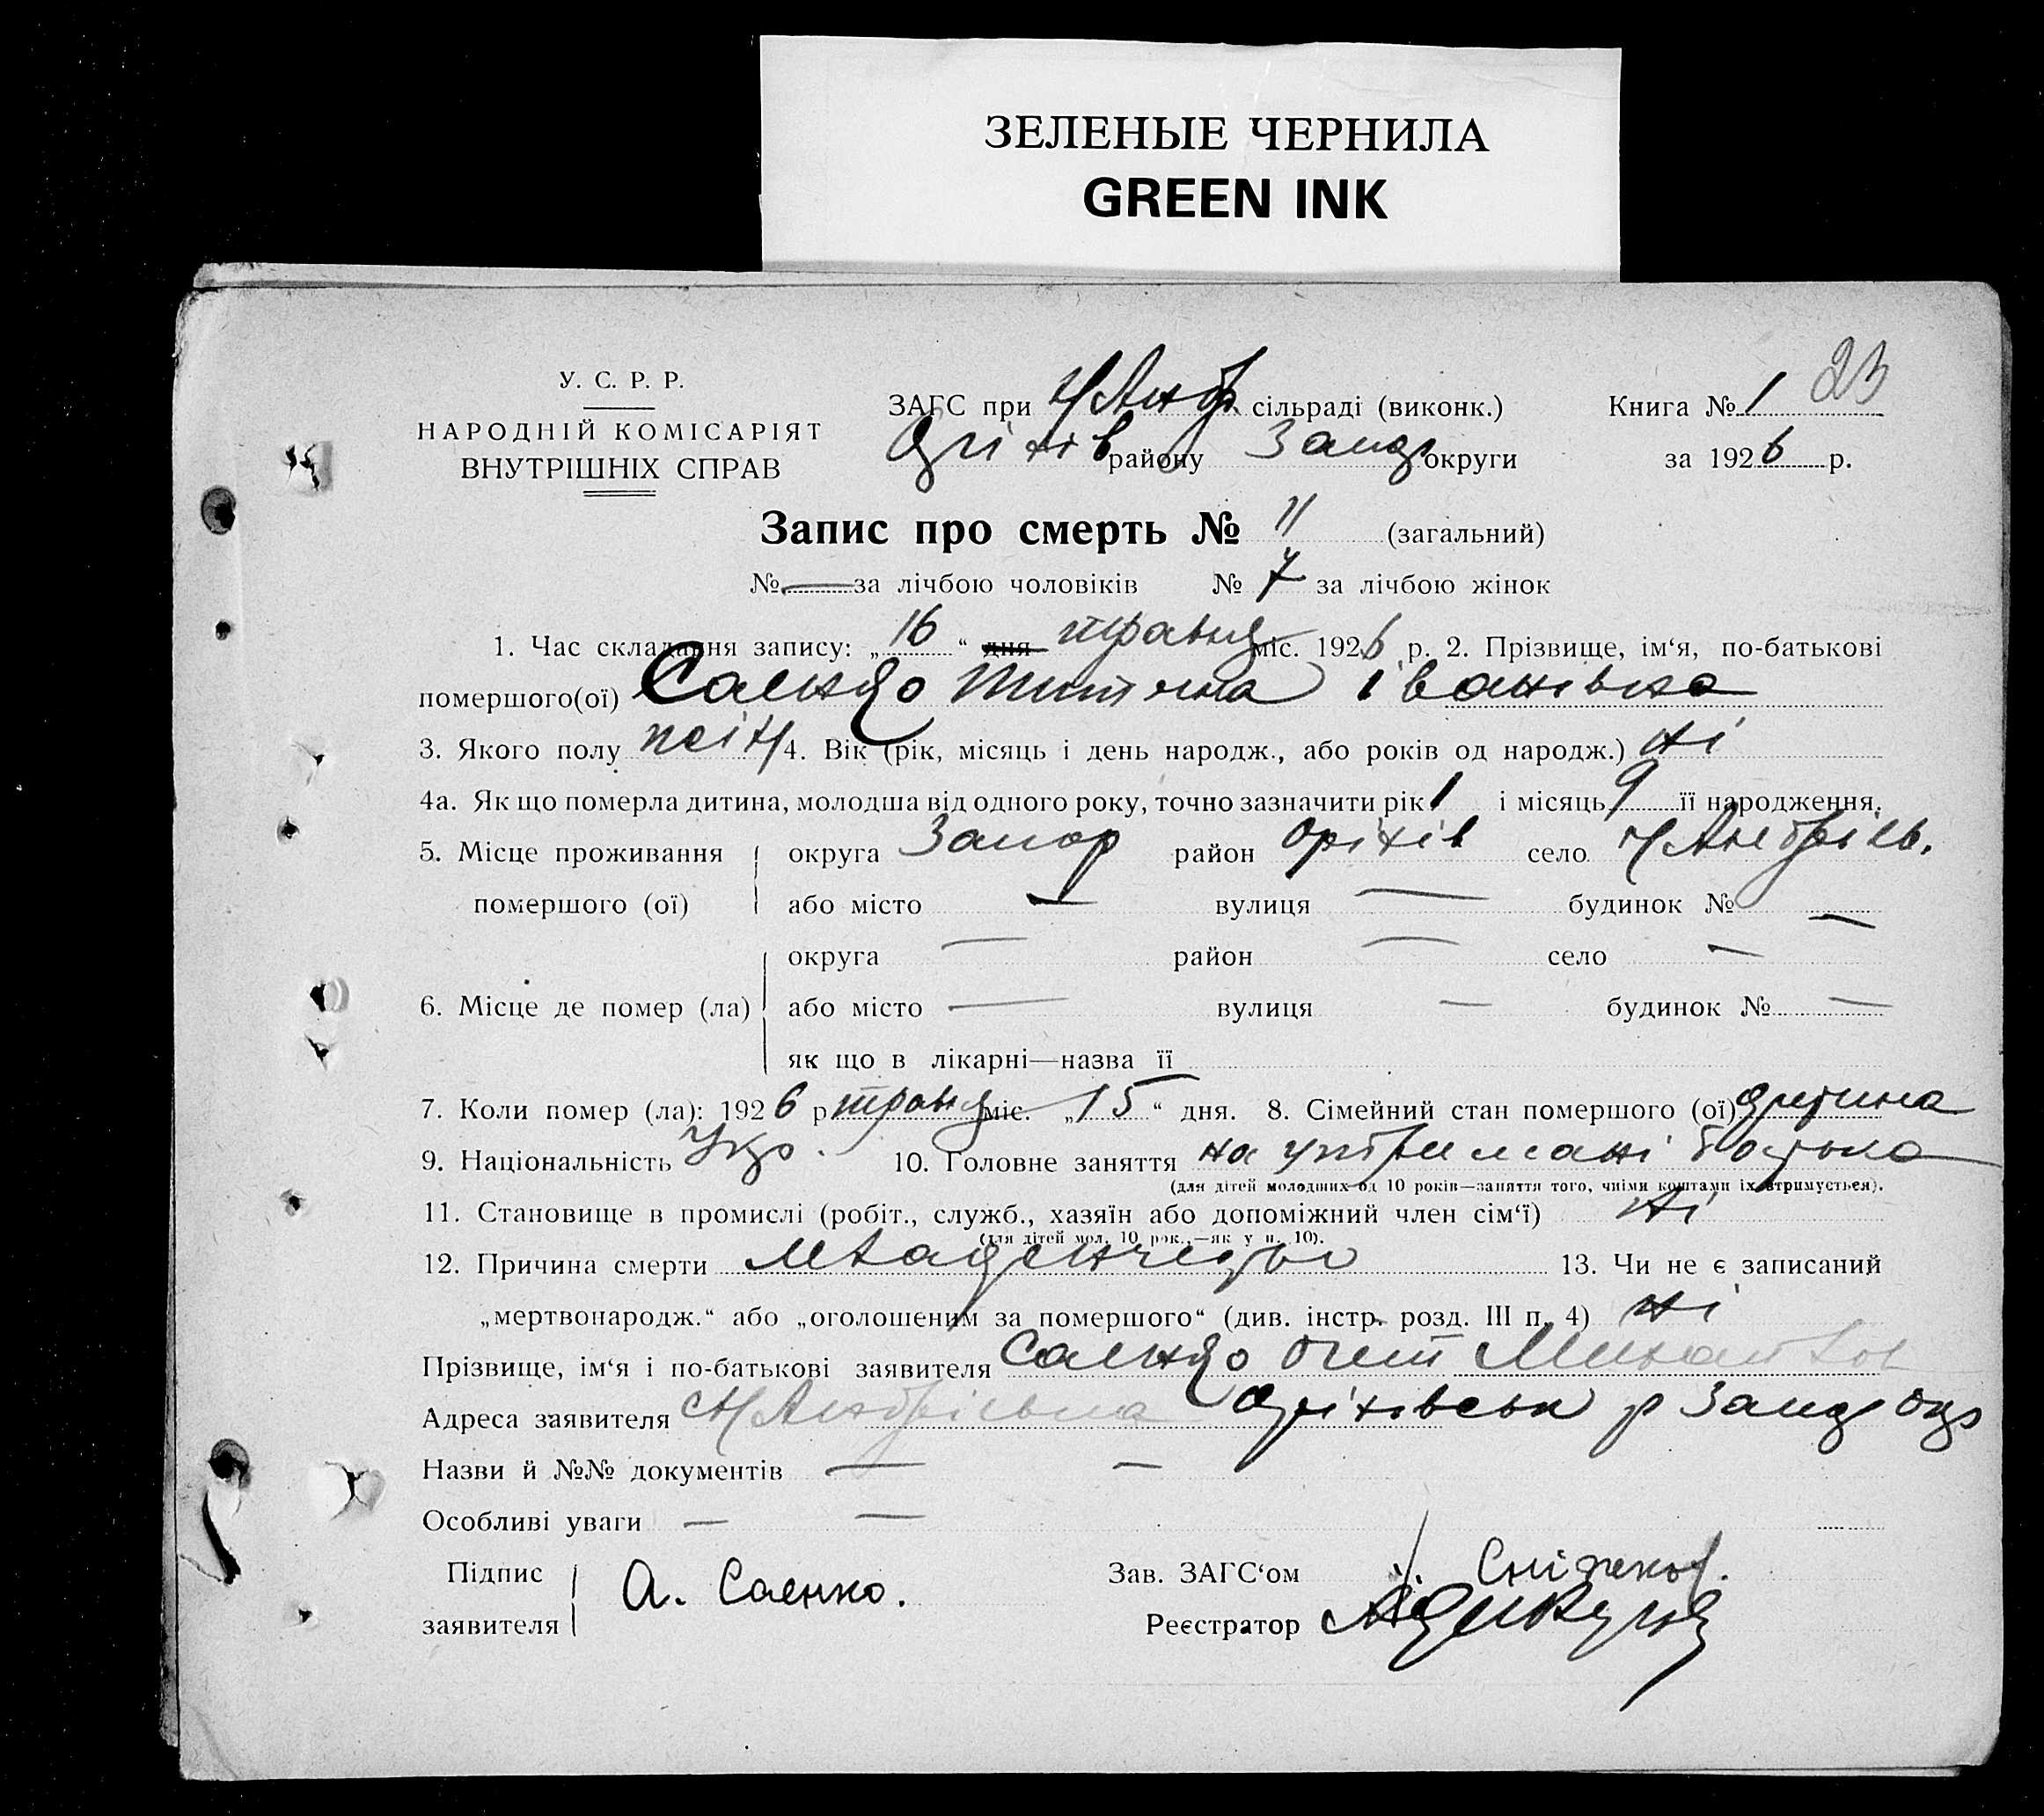 ЗЕЛЕНЫЕ ЧЕРНИЛА
GREEN INK
23
У. С. Р. Р.
НАРОДНІЙ КОМІСАРІЯТ
ВНУТРІШНІХ СПРАВ
ЗАГС при Н Андр. сільраді (виконк.) Книга № 1
Оріхів району Запор округи за 1926 р.
Запис про смерть № 11 (загальний)
№ — за лічбою чоловіків № 7 за лічбою жінок
1. Час складання запису: „16“ дня травня міс. 1926 р. 2. Прізвище, ім‘я, по-батькові
помершого(ої) Саенко Іванівна
3. Якого полу 4. Вік (рік, місяць і день народж., або років од народж.) ні
4а. Як що померла дитина, молодша від одного року, точно зазначити рік 1 і місяць 9 її народження.
5. Місце проживання округа Запор район Оріхів село Н Андрівь.
помершого (ої) або місто — вулиця — будинок № —
округа — район — село —
6. Місце де помер (ла) або місто — вулиця — будинок № —
як що в лікарні—назва її —
7. Коли помер (ла): 1926 р травня міс. „15“ дня. 8. Сімейний стан помершого (ої) дитина
9. Національність Укр. 10. Головне заняття на утримані батька
(для дітей молодших од 10 років—заняття того, чиїми коштами їх втримується).
11. Становище в промислі (робіт., служб., хазяїн або допоміжний член сім‘ї) ні
(для дітей мол. 10 рок.,—як у п. 10).
12. Причина смерти 13. Чи не є записаний
„мертвонародж.“ або „оголошеним за помершого“ (див. інстр. розд. III п. 4) ні
Прізвище, ім‘я і по-батькові заявителя Саенко
Адреса заявителя Оріхівськ р Запор окр
Назви й №№ документів — —
Особливі уваги — —
Підпис заявителя А. Саенко.
Зав. ЗАГС‘ом
Реєстратор